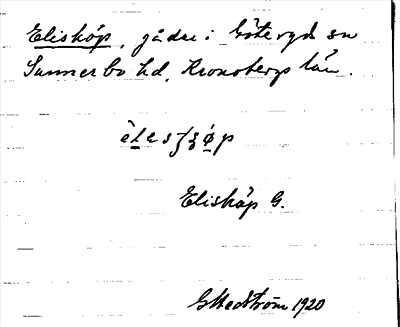 Eliskóp, gåden i Göteryds sn
Sunnerbo hd, Kronobergs län.
Eliskóp G.
G Hedström 1920